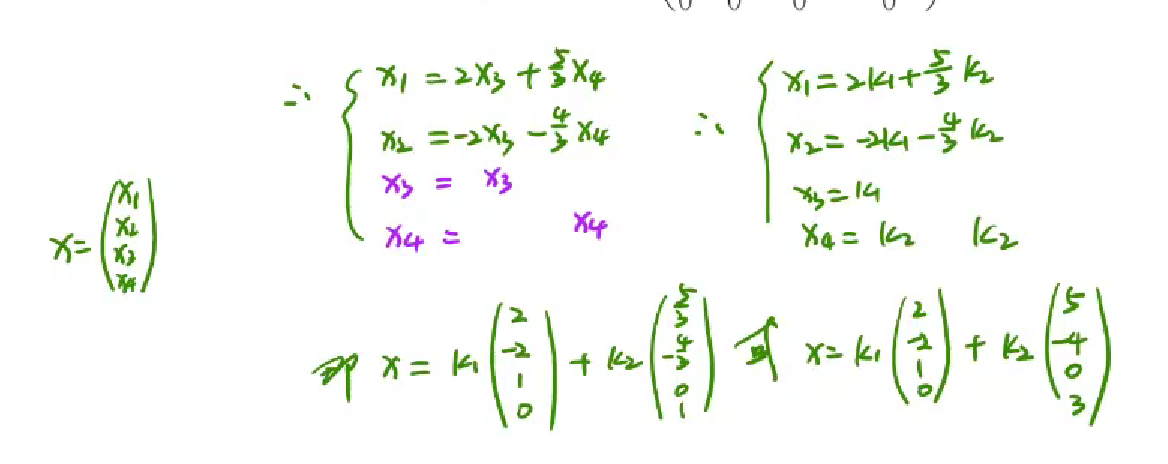 (0 0 0 0)
∴ { x₁ = 2x₃ + 5/3 x₄
x₂ = -2x₃ - 4/3 x₄
x₃ = x₃
x₄ = x₄
∴ { x₁ = 2k₁ + 5/3 k₂
x₂ = -2k₁ - 4/3 k₂
x₃ = k₁
x₄ = k₂ k₂
x = (x₁ x₂ x₃ x₄)
即 x = k₁ (2 -2 1 0) + k₂ (5/3 -4/3 0 1) 或 x = k₁ (2 -2 1 0) + k₂ (5 -4 0 3)